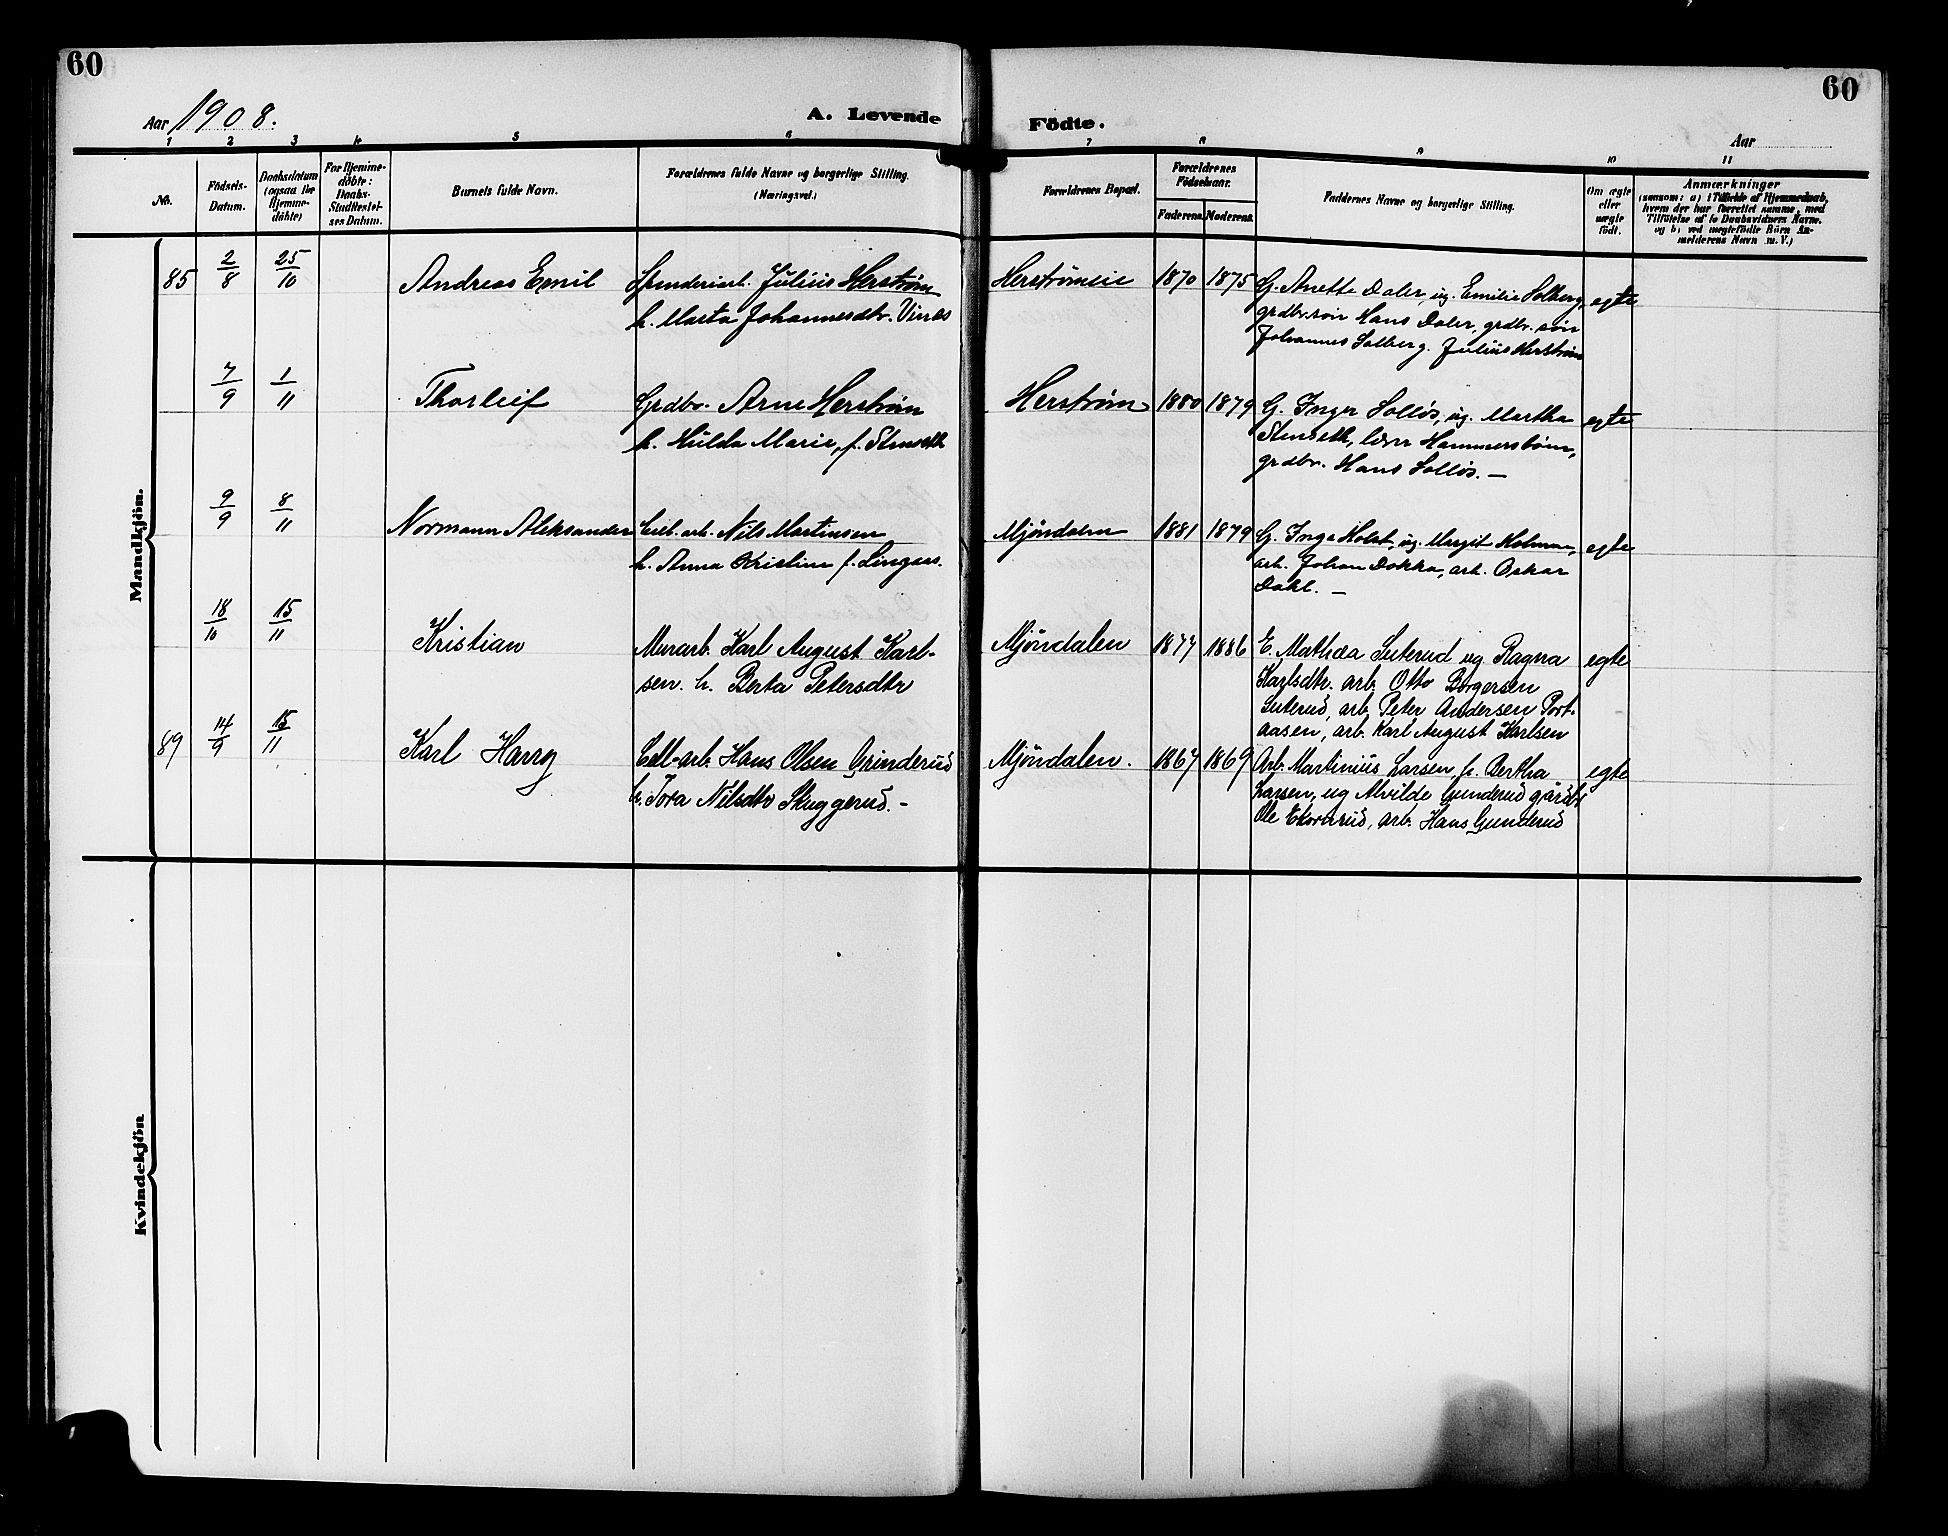 60
60
Aar 1908.
A. Levende
Födte.
Aar
1 2 3 4 5 6 7 8 9 10 11
No.
Födsels-
Datum.
Daabsdatum
(ogsaa for
Hjemme-
döbte)
For Hjemme-
döbte:
Daabs-
Stadfestel-
ses Datum.
Barnets fulde Navn.
Forældrenes fulde Navne og borgerlige Stilling.
(Næringsvei.)
Forældrenes Bopæl.
Forældrenes
Födselsaar.
Faderens. Moderens.
Faddernes Navne og borgerlige Stilling.
Om ægte
eller
uægte
födt.
Anmærkninger
(saasom: a) i Tilfælde af Hjemmedaab,
hvem der har forrettet samme, med
Tilföielse af to Daabsvidners Navne.
og b) ved uægtefödte Börn An-
melderens Navn m. V.)
Mandkjön.
85 2/8 25/10 Andreas Emil Spinderiarb. Julius Herstrøm
h. Marta Johannesdtr. Vinæs
Herstrømeie 1870 1875 G. Anette Daler, ug. Emilie Solberg,
grdbr. søn Hans Daler, grdbr. søn
Johannes Solberg. Julius Herstrøm
egte
7/9 1/11 Thorleif Grdbr. Arne Herstrøm
h. Hulda Marie, f. Stenseth
Herstrøm 1880 1879 G. Inger Solløs, ug. Martha
Stenseth, lærer Hammersbøen,
grdbr. Hans Solløs. —
egte
9/9 8/11 Normann Aleksander Cell. arb. Nils Martinsen
h. Anna Kristine f. Lingaas.
Mjøndalen 1881 1879 G. Inga Holst, ug. Margit Holmen,
arb. Johan Dokka, arb. Oskar
Dahl. —
egte
18/10 15/11 Kristian Murarb. Karl August Karl-
sen. h. Berta Petersdtr
Mjöndalen 1877 1886 E. Mathea Suterud ug Ragna
Karlsdtr. arb. Otto Borgersen
Suterud, arb. Peter Andersen Port-
aasen, arb. Karl August Karlsen
egte
89 14/9 15/11 Karl Harry Cell-arb. Hans Olsen Grinderud
h. Tora Nilsdtr Skuggerud. -
Mjöndalen. 1867 1869 Arb. Martinius Larsen, h. Bertha
Larsen, ug Alvilde Gunderud gårdbr
Ole Ekornrud, arb. Hans Gunderud
egte
Kvindekjön